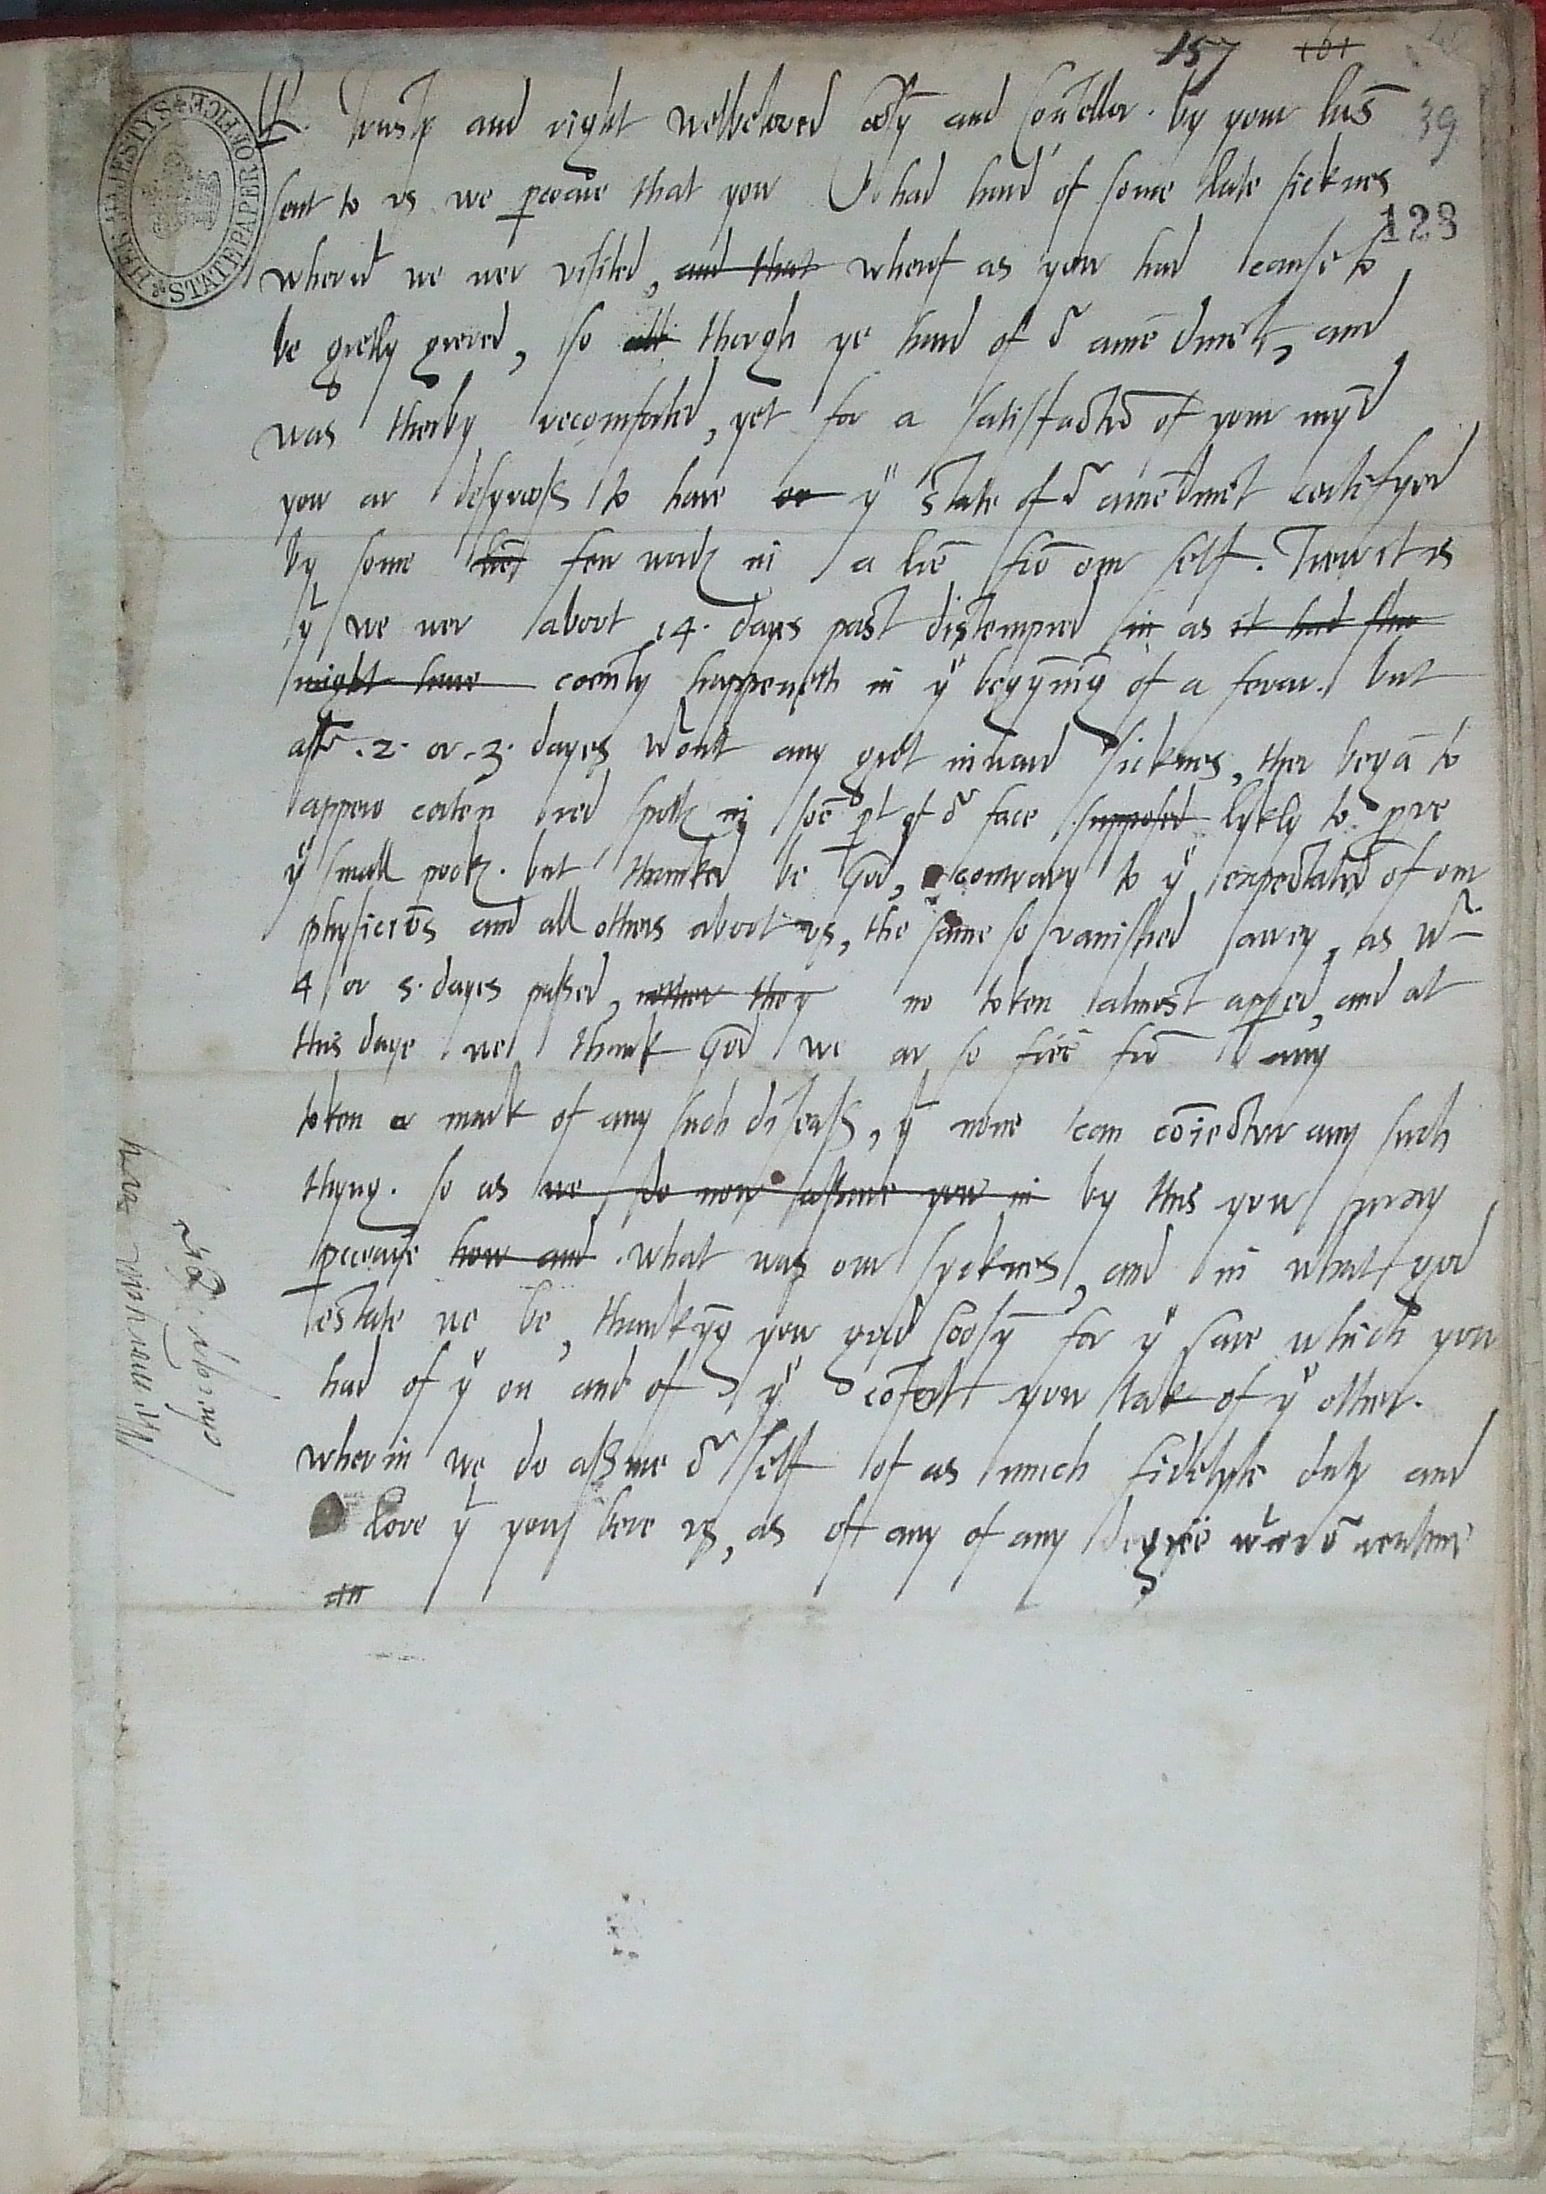 157 161
39
128
HER MAJESTYS STATE PAPER OFFICE
R. trusty and right welbeloved cosȳ and Coūcellor. by your lr̄es
sent to us we perceave that you had hard of some late sicknes
wherwt we wer visited, and that wherof as you had cause to
be gretly greved, so all thoogh ye hard of or amēdmēt, and
was therby recomforted, yet for a satisfactiō of your mynd
you ar desyrooss to have ye state of or amēdmēt certefyed
by some few words in a lr̄e frō our self. Trew it is
yt we wer about 14. days past distempred in as it had
might have com̄ly happeneth in ye begyñīg of a fever. but
aftr .2. or .3. dayes wtout any gret inward sicknes, ther begā to
appere certen red spotts in sōe pt of or face supposed lykly to prove
ye small pocks. but thanked be God, contrary to ye expectatiō of our
physiciōs and all others about us, the same so vanished awey, as wtin
4 or 5. dayes passed, nether they no token almost appered, and at
this daye we thank God we ar so free frō any
token or mark of any such diseass, yt none can cōiectur any such
thyng. so as we do now assure you in by this you may
perceave how and what was our sycknes, and in what good
estate we be, thankȳg you good Coosȳ for ye care which you
had of ye on and of ye cōfort you tak of ye other.
wherin we do assure or self of as much fidelyte duty and
love yt you bere us, as of any of any degree